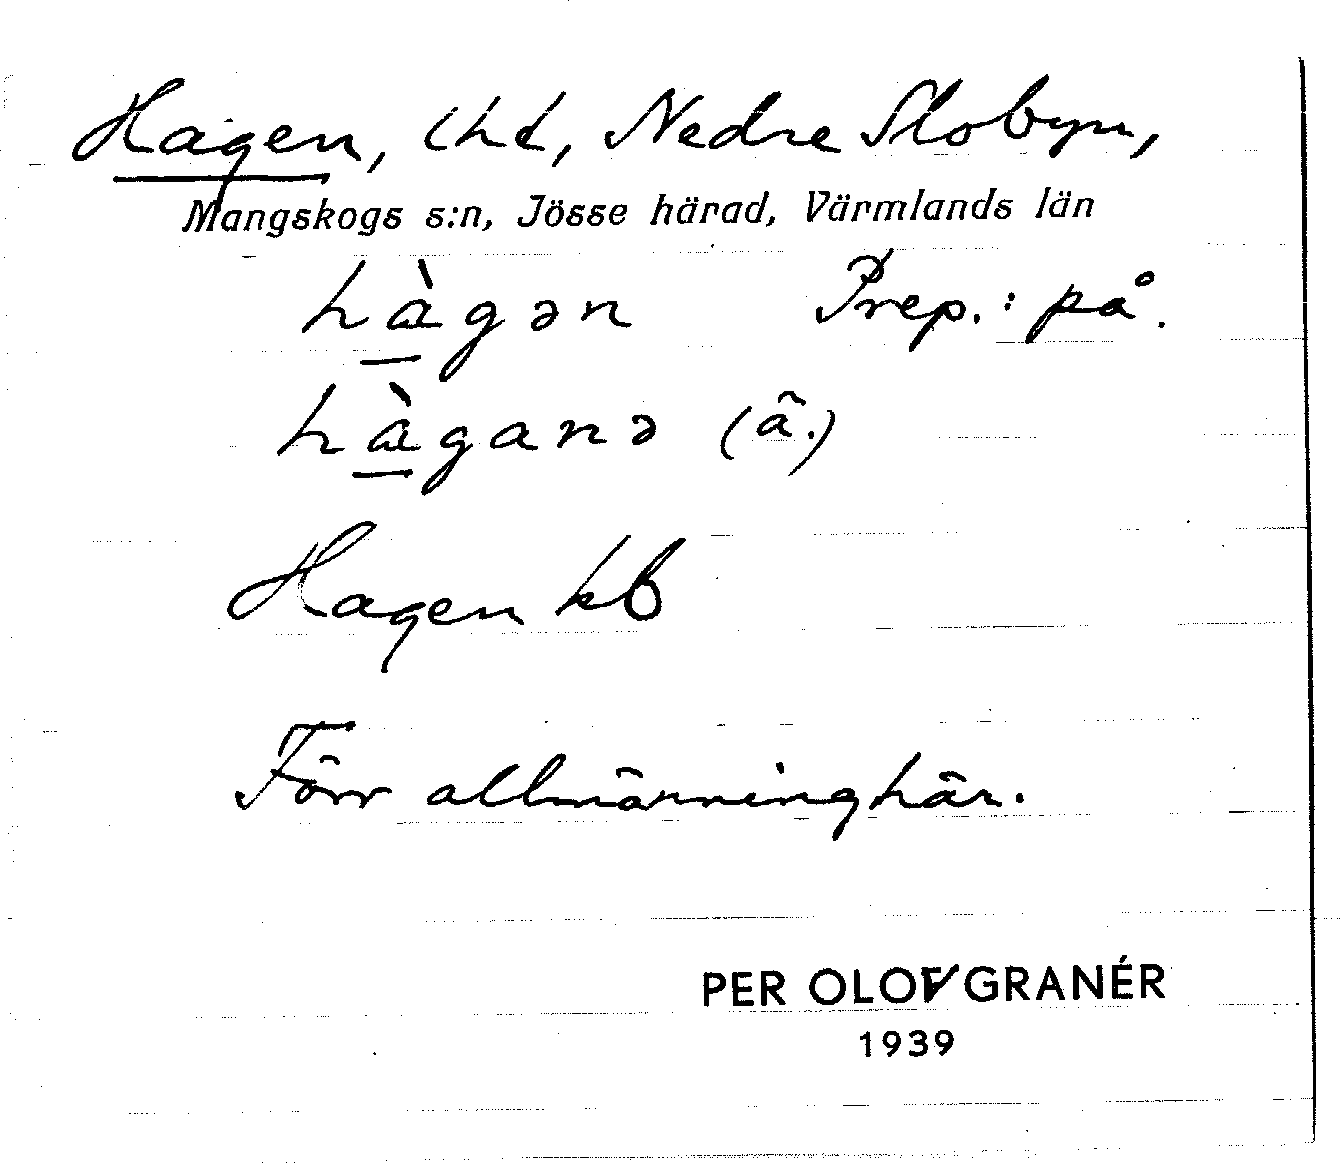 Hagen, lht, Nedre Slobyn,
Mangskogs s:n, Jösse härad, Värmlands län
hàgən Prep.: på.
hàganə (ä.)
Hagen kb
Förr allmänning här.
PER OLOF GRANÉR
1939